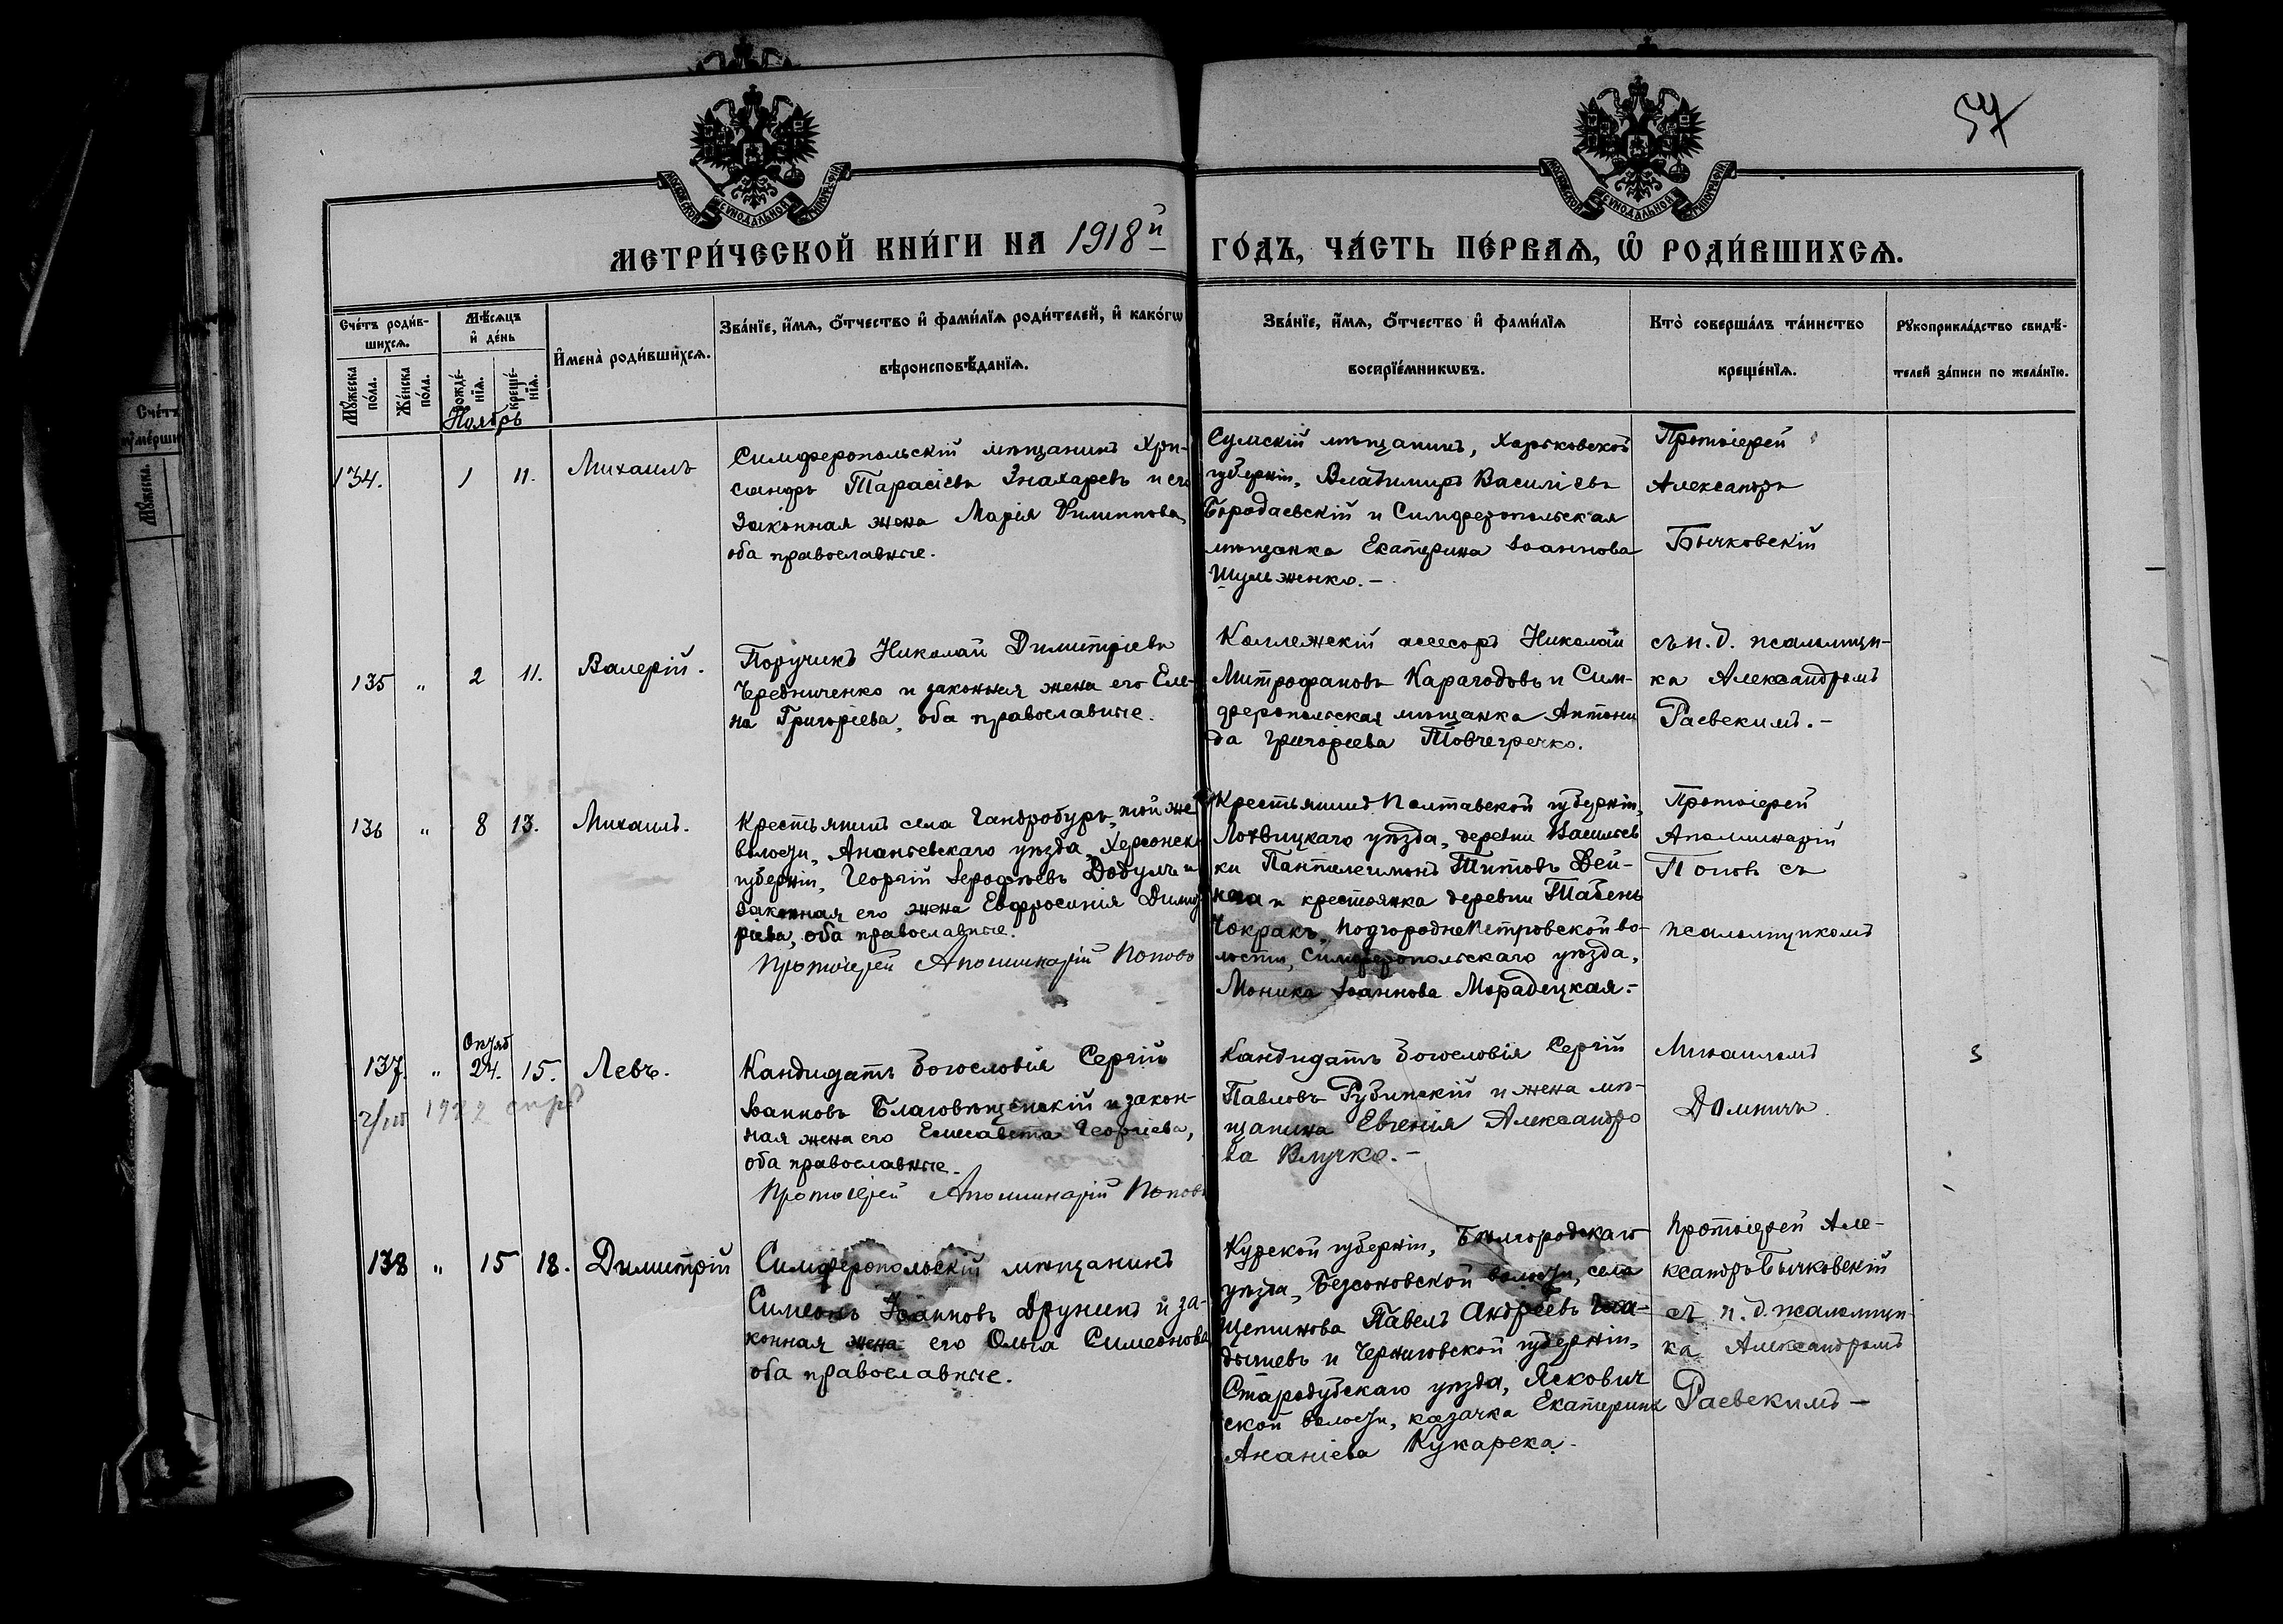 57
МОСКОВСКОЙ СѴНОДАЛЬНОЙ ТИПОГРАФІИ
МОСКОВСКОЙ СѴНОДАЛЬНОЙ ТИПОГРАФІИ
МЕТРИ́ЧЕСКОЙ КНИ́ГИ НА 1918й ГО́ДЪ, ЧА́СТЬ ПЕ́РВАѦ, Ѡ҆ РОДИ́ВШИХСѦ.
Сче́тъ роди́в-
шихсѧ.
Мꙋ́жеска по́ла.
Же́нска по́ла.
Мѣ́сѧцъ
и҆ де́нь
рожде́-
нїѧ.
креще́-
нїѧ.
И҆мена̀ роди́вшихсѧ.
Зва́нїе, и҆́мѧ, ѻ҆́тчество и҆ фами́лїѧ роди́телей, и҆ како́гѡ
вѣроисповѣ́данїѧ.
Зва́нїе, и҆́мѧ, ѻ҆́тчество и҆ фами́лїѧ
воспрїе́мникѡвъ.
Кто̀ соверша́лъ та́инство
креще́нїѧ.
Рꙋкоприкла́дство свидѣ́-
телей за́писи по жела́нїю.
Ноябрь
134.
1
11.
Михаилъ
Симферопольскій мѣщанинъ Хри-
сандръ Тарасіевъ Знахаревъ и его
законная жена Марія Филиппова,
оба православные.
Сумскій мѣщанинъ, Харьковской
губерніи, Владимиръ Василіевъ
Бородаевскій и Симферопольская
мѣщанка Екатерина Іоаннова
Шульженко. –
Протоіерей
Александръ
Бычковскій
135
"
2
11.
Валерій.
Поручикъ Николай Димитріевъ
Чередниченко и законная жена его Еле-
на Григоріева, оба православные.
Коллежскій асессоръ Николай
Митрофановъ Карагодовъ и Сим-
феропольская мѣщанка Антони
да Григоріева Товчегречко.
съ и. д. псаломщи-
ка Александромъ
Раевскимъ. –
136
"
8
13.
Михаилъ.
Крестьянинъ села Гандробуръ, той же
волости, Ананьевскаго уѣзда, Херсонск
губерніи, Георгій Іерофѣевъ Додулъ и
законная его жена Евфросинія Димит
ріева, оба православные.
Протоіерей Аполлинарій Поповъ
Крестьянинъ Полтавской губерніи,
Лохвицкаго уѣзда, деревни Васильев
ки Пантелеимонъ Титовъ Дей-
нега и крестьянка деревни Табень
Чокракъ, Подгородне Петровской во-
лости, Симферопольскаго уѣзда,
Моника Іоаннова Морадецкая. –
Протоіерей
Аполлинарій
Поповъ съ
псаломщикомъ
137.
"
Октяб
24.
15.
Левъ.
1922 спр
Кандидатъ богословія Сергій
Іоанновъ Благовѣщенскій и закон-
ная жена его Елисавета Георгіева,
оба православные.
Протоіерей Аполлинарій Поповъ
Кандидатъ богословія Сергій
Павловъ Рубинскій и жена мѣ-
щанина Евгенія Александро
ва Влучко. –
Михаиломъ
Домничъ.
138
"
15
18.
Димитрій
Симферопольскій мѣщанинъ
Симеонъ Іоанновъ Друнинъ и за-
конная жена его Ольга Симеонова
оба православные.
Курской губерніи, Бѣлгородскаго
уѣзда, Безсоновской волости, села
Щетинова Павелъ Андреевъ Гла-
дышевъ и Черниговской губерніи,
Стародубскаго уѣзда, Яскович
ской волости, казачка Екатерина
Ананіева Кукарека.
Протоіерей Але-
ксандръ Бычковскій
съ и. д. псаломщи-
ка Александромъ
Раевскимъ –